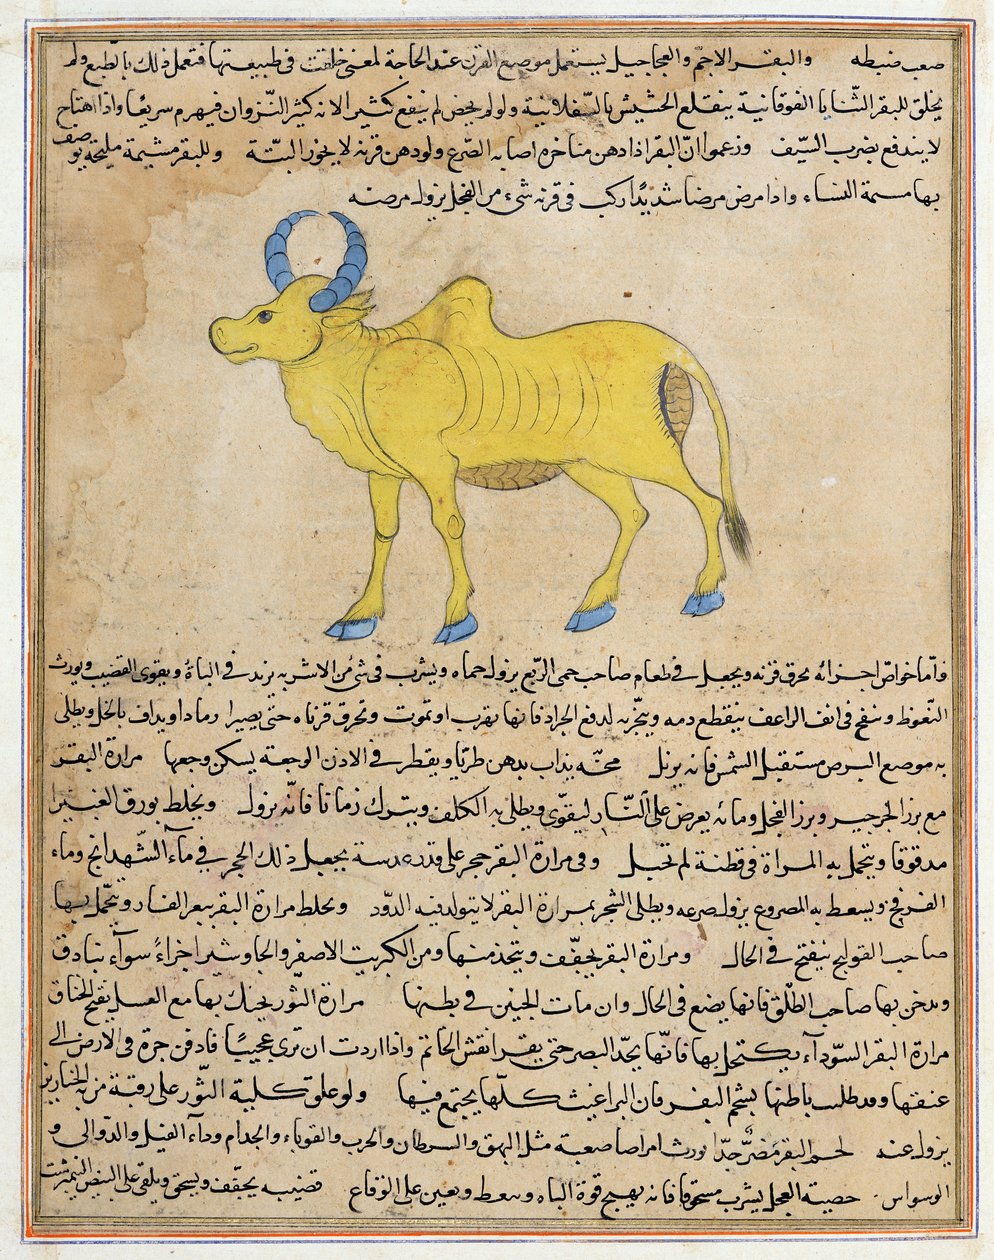 صعب ضبطه والبقر الاجم والعجاجيل يستعمل موضع القرن عند الحاجة لمعنى خلقت فى طبيعتها فتعمل ذلك بالطبع ولم
يخلق للبقر الثنايا الفوقانية ينقلع الحشيش بالسفلانية ولو لم يخض لم ينفع كثيرا لانه كثير النزوان فيهرم سريعا واذا اهتاج
لا يندفع بضرب السيف وزعموا ان البقر اذا دهن مناخره اصابه الصرع ولو دهن قرنه لا يخور البتة وللبقر مشيمة مليحة يوصف
بها مسمة النساء واذا مرض مرضا شديدا ركب فى قرنه شىء من الفجل يزول مرضه
فأما خواص اجزائه يحرق قرنه ويجعل فى طعام صاحب حمى الربع يزول حماه ويشرب فى شئ من الاشربه يزيد فى الباة ويقوى القضيب ويورث
النعوظ وينفخ فى انف الراعف ينقطع دمه ويبخر به لدفع الجراد فانها تهرب او تموت وتحرق قرناه حتى يصيرا رمادا ويداف بالخل ويطلى
به موضع البرص مستقبل الشمس فانه يزيل مخه يذاب بدهن طريا ويقطر فى الاذن الوجعة يسكن وجعها مرارة البقر
مع بزر الجرجير وبزر الفجل ومائه يعرض على النار ليقوى ويطلى به الكلف ويترك زمانا فانه يزول ويخلط بورق الغبيرا
مدقوقا ويتحمل به المراة فى قطنة لم تحبل وفى مرارة البقر حجر على قدر عدسة يجعل ذلك الحجر فى مآء الشهدانج وماء
الفرفخ ويسعط به المصروع يزول صرعه ويطلى الشجر بمرارة البقر لا يتولد فيه الدود وتخلط مرارة البقر ببعر الفار ويتحمل بها
صاحب القولنج ينفتح فى الحال ومرارة البقر يجفف ويتخذ منها ومن الكبريت الاصفر والجاوشير اجزاءً سوآء بنادق
ويدخن بها صاحب الطلق فانها يضع فى الحال وان مات الجنين فى بطنها مرارة الثور يحنك بها مع العسل يفتح الخناق
مرارة البقر السودآء يكتحل بها فانها يحد البصر حتى يقرا نقش الخاتم واذا اردت ان ترى عجيبا فادفن جرة فى الارض الى
عنقها وقد طلت باطنها بشحم البقر فان البراغيث كلها يجتمع فيها ولو علق كلية الثور على رقبة من به الخنازير
يزول عنه لحم البقر مضر جدا يورث امراضا صعبة مثل البهق والسرطان والجرب والقوباء والجدام وداء الفيل والدوالى و
الوسواس. خصية العجل يشرب مسحوقا فانه يهيج قوة الباه وينعظ ويعين على الوقاع قضيبه يجفف ويسحق ويلقى على البيض النيمرشت